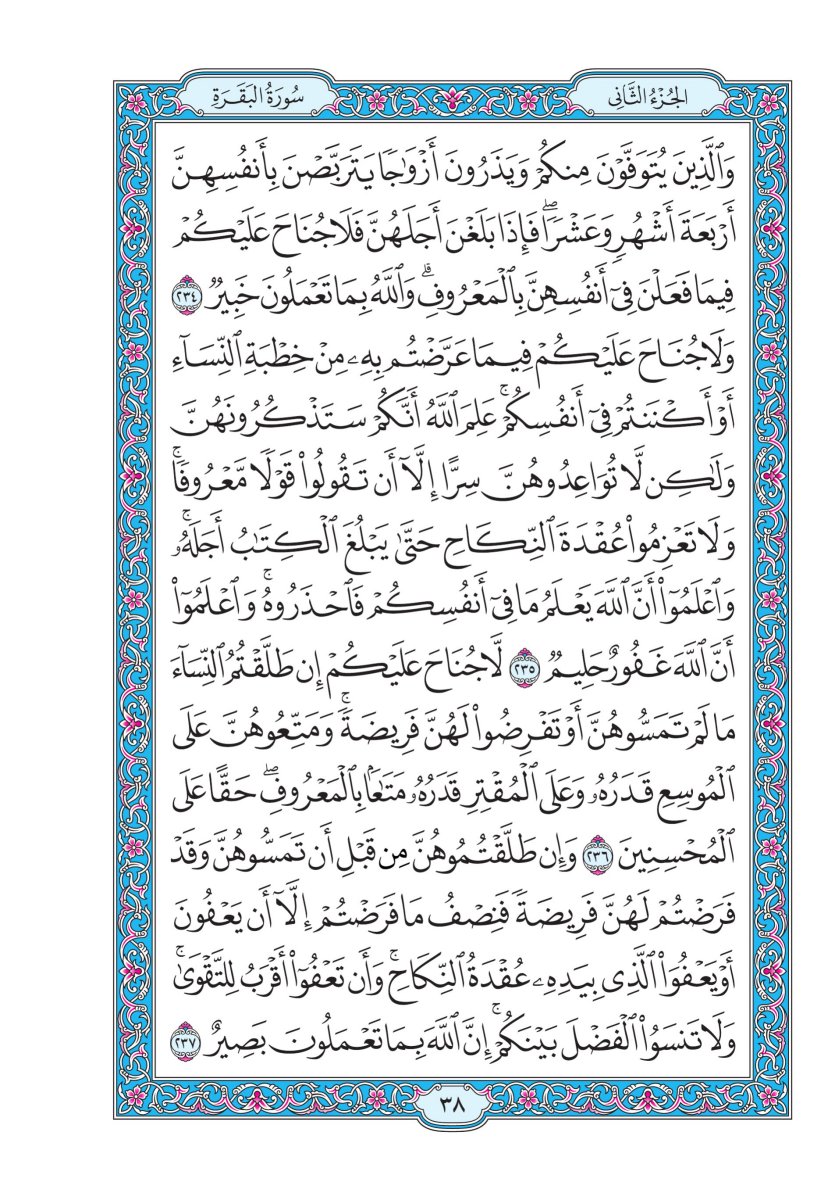 الجُزْءُ الثَّانِى
سُورَةُ البَقَرَةِ
وَٱلَّذِينَ يُتَوَفَّوۡنَ مِنكُمۡ وَيَذَرُونَ أَزۡوَٰجٗا يَتَرَبَّصۡنَ بِأَنفُسِهِنَّ
أَرۡبَعَةَ أَشۡهُرٖ وَعَشۡرٗاۖ فَإِذَا بَلَغۡنَ أَجَلَهُنَّ فَلَا جُنَاحَ عَلَيۡكُمۡ
فِيمَا فَعَلۡنَ فِيٓ أَنفُسِهِنَّ بِٱلۡمَعۡرُوفِۗ وَٱللَّهُ بِمَا تَعۡمَلُونَ خَبِيرٞ ٢٣٤
وَلَا جُنَاحَ عَلَيۡكُمۡ فِيمَا عَرَّضۡتُم بِهِۦ مِنۡ خِطۡبَةِ ٱلنِّسَآءِ
أَوۡ أَكۡنَنتُمۡ فِيٓ أَنفُسِكُمۡۚ عَلِمَ ٱللَّهُ أَنَّكُمۡ سَتَذۡكُرُونَهُنَّ
وَلَٰكِن لَّا تُوَاعِدُوهُنَّ سِرًّا إِلَّآ أَن تَقُولُواْ قَوۡلٗا مَّعۡرُوفٗاۚ
وَلَا تَعۡزِمُواْ عُقۡدَةَ ٱلنِّكَاحِ حَتَّىٰ يَبۡلُغَ ٱلۡكِتَٰبُ أَجَلَهُۥۚ
وَٱعۡلَمُوٓاْ أَنَّ ٱللَّهَ يَعۡلَمُ مَا فِيٓ أَنفُسِكُمۡ فَٱحۡذَرُوهُۚ وَٱعۡلَمُوٓاْ
أَنَّ ٱللَّهَ غَفُورٌ حَلِيمٞ ٢٣٥ لَّا جُنَاحَ عَلَيۡكُمۡ إِن طَلَّقۡتُمُ ٱلنِّسَآءَ
مَا لَمۡ تَمَسُّوهُنَّ أَوۡ تَفۡرِضُواْ لَهُنَّ فَرِيضَةٗۚ وَمَتِّعُوهُنَّ عَلَى
ٱلۡمُوسِعِ قَدَرُهُۥ وَعَلَى ٱلۡمُقۡتِرِ قَدَرُهُۥ مَتَٰعَۢا بِٱلۡمَعۡرُوفِۖ حَقًّا عَلَى
ٱلۡمُحۡسِنِينَ ٢٣٦ وَإِن طَلَّقۡتُمُوهُنَّ مِن قَبۡلِ أَن تَمَسُّوهُنَّ وَقَدۡ
فَرَضۡتُمۡ لَهُنَّ فَرِيضَةٗ فَنِصۡفُ مَا فَرَضۡتُمۡ إِلَّآ أَن يَعۡفُونَ
أَوۡ يَعۡفُوَاْ ٱلَّذِي بِيَدِهِۦ عُقۡدَةُ ٱلنِّكَاحِۚ وَأَن تَعۡفُوٓاْ أَقۡرَبُ لِلتَّقۡوَىٰۚ
وَلَا تَنسَوُاْ ٱلۡفَضۡلَ بَيۡنَكُمۡۚ إِنَّ ٱللَّهَ بِمَا تَعۡمَلُونَ بَصِيرٌ ٢٣٧
٣٨